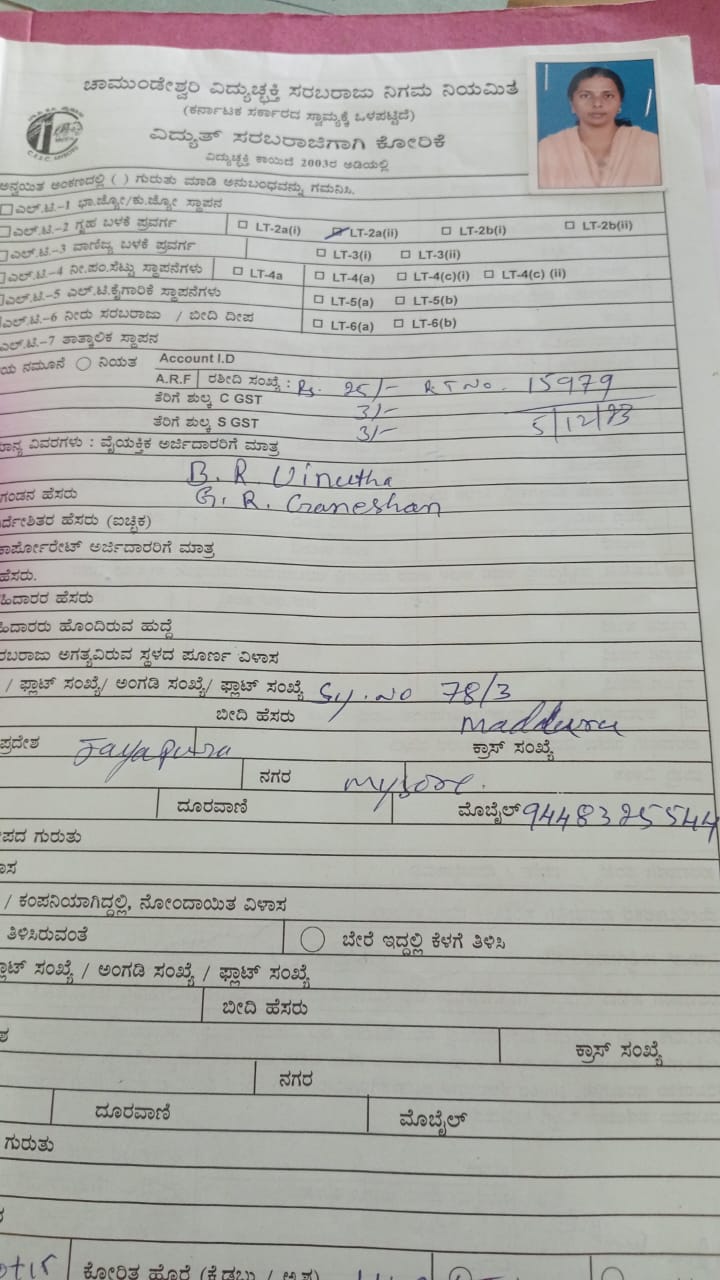 ಚಾಮುಂಡೇಶ್ವರಿ ವಿದ್ಯುಚ್ಛಕ್ತಿ ಸರಬರಾಜು ನಿಗಮ ನಿಯಮಿತ
(ಕರ್ನಾಟಕ ಸರ್ಕಾರದ ಸ್ವಾಮ್ಯಕ್ಕೆ ಒಳಪಟ್ಟಿದೆ)
ವಿದ್ಯುತ್ ಸರಬರಾಜಿಗಾಗಿ ಕೋರಿಕೆ
ವಿದ್ಯುಚ್ಛಕ್ತಿ ಕಾಯಿದೆ 2003ರ ಅಡಿಯಲ್ಲಿ
ಅನ್ವಯಿತ ಅಂಕಣದಲ್ಲಿ ( ) ಗುರುತು ಮಾಡಿ ಅನುಬಂಧವನ್ನು ಗಮನಿಸಿ.
ಎಲ್.ಟಿ.-1 ಭಾ.ಜ್ಯೋ/ಕು.ಜ್ಯೋ ಸ್ಥಾಪನ
ಎಲ್.ಟಿ.-2 ಗೃಹ ಬಳಕೆ ಪ್ರವರ್ಗ LT-2a(i) LT-2a(ii) LT-2b(i) LT-2b(ii)
ಎಲ್.ಟಿ.-3 ವಾಣಿಜ್ಯ ಬಳಕೆ ಪ್ರವರ್ಗ LT-3(i) LT-3(ii)
ಎಲ್.ಟಿ.-4 ನೀ.ಪಂ.ಸೆಟ್ಟು ಸ್ಥಾಪನೆಗಳು LT-4a LT-4(a) LT-4(c)(i) LT-4(c) (ii)
ಎಲ್.ಟಿ.-5 ಎಲ್.ಟಿ.ಕೈಗಾರಿಕೆ ಸ್ಥಾಪನೆಗಳು LT-5(a) LT-5(b)
ಎಲ್.ಟಿ.-6 ನೀರು ಸರಬರಾಜು / ಬೀದಿ ದೀಪ LT-6(a) LT-6(b)
ಎಲ್.ಟಿ.-7 ತಾತ್ಕಾಲಿಕ ಸ್ಥಾಪನ
ನಮೂನೆ ನಿಯತ Account I.D
A.R.F ರಶೀದಿ ಸಂಖ್ಯೆ : Rs. 25/- RT No. 15979
ತೆರಿಗೆ ಶುಲ್ಕ C GST 3/-
ತೆರಿಗೆ ಶುಲ್ಕ S GST 3/- 5/12/23
ವಿವರಗಳು : ವೈಯಕ್ತಿಕ ಅರ್ಜಿದಾರರಿಗೆ ಮಾತ್ರ
B. R Vinutha
ಗಂಡನ ಹೆಸರು G. R. Ganeshan
ಹೆಸರು (ಐಚ್ಛಿಕ)
ಅರ್ಜಿದಾರರಿಗೆ ಮಾತ್ರ
ಹೆಸರು.
ಹೆಸರು
ಹೊಂದಿರುವ ಹುದ್ದೆ
ಅಗತ್ಯವಿರುವ ಸ್ಥಳದ ಪೂರ್ಣ ವಿಳಾಸ
/ ಫ್ಲಾಟ್ ಸಂಖ್ಯೆ/ ಅಂಗಡಿ ಸಂಖ್ಯೆ/ ಫ್ಲಾಟ್ ಸಂಖ್ಯೆ Sy. No 78/3
ಬೀದಿ ಹೆಸರು Madduru
ಪ್ರದೇಶ Jayapura ಕ್ರಾಸ್ ಸಂಖ್ಯೆ
ನಗರ Mysore.
ದೂರವಾಣಿ ಮೊಬೈಲ್ 9448325544
ಗುರುತು
/ ಕಂಪನಿಯಾಗಿದ್ದಲ್ಲಿ, ನೋಂದಾಯಿತ ವಿಳಾಸ
ತಿಳಿಸಿರುವಂತೆ ಬೇರೆ ಇದ್ದಲ್ಲಿ ಕೆಳಗೆ ತಿಳಿಸಿ
ಸಂಖ್ಯೆ / ಅಂಗಡಿ ಸಂಖ್ಯೆ / ಫ್ಲಾಟ್ ಸಂಖ್ಯೆ
ಬೀದಿ ಹೆಸರು
ಕ್ರಾಸ್ ಸಂಖ್ಯೆ
ನಗರ
ದೂರವಾಣಿ ಮೊಬೈಲ್
ಗುರುತು
ಕೋರಿತ ಹೊರೆ